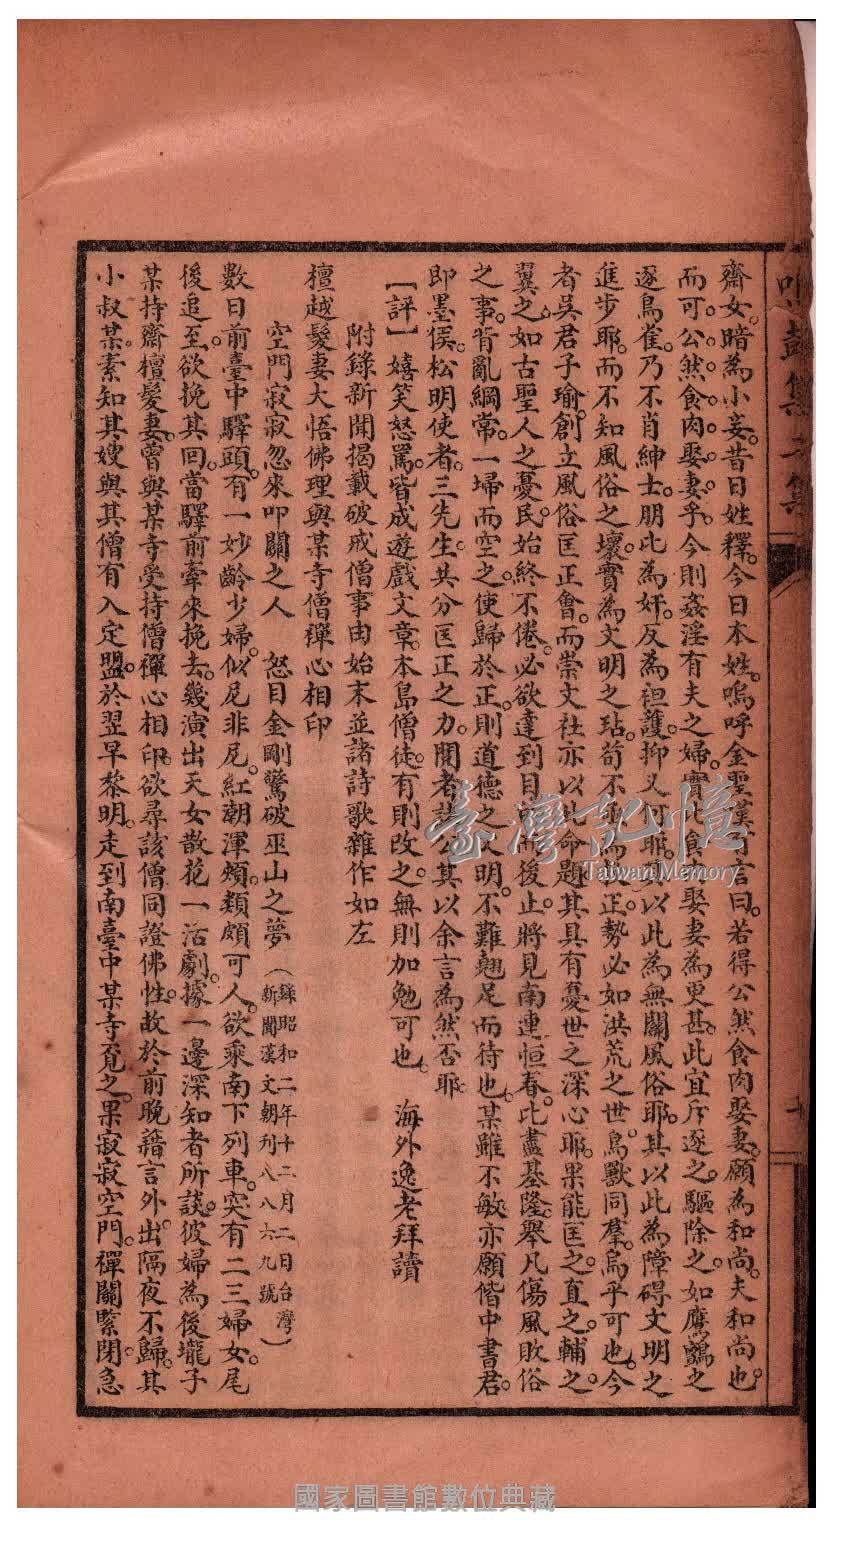 鳴鼓集二集
齋女。暗為小妾。昔日姓釋。今日本姓。嗚呼金聖漢有言曰。若得公然食肉娶妻。願為和尚。夫和尚也。
而可公然食肉娶妻乎。今則姦淫有夫之婦。實比食肉娶妻為更甚。此宜斥逐之。驅除之。如鷹鸇之
逐鳥雀。乃不肖紳士。朋比為奸。反為袒護。抑又何耶。豈以此為無關風俗耶。其以此為障碍文明之
進步耶。而不知風俗之壞。實為文明之玷。苟不亟為救正。勢必如洪荒之世。鳥獸同羣。烏乎可也。今
者吳君子瑜。創立風俗匡正會。而崇文社亦以此命題。其具有憂世之深心耶。果能匡之。直之。輔之。
翼之。如古聖人之憂民。始終不倦。必欲達到目的而後止。將見南連恒春。北盡基隆。舉凡傷風敗俗
之事。背亂綱常。一埽而空之。使歸於正。則道德之文明。不難翹足而待也。某雖不敏。亦願偕中書君。
即墨侯。松明使者。三先生。共分匡正之力。閱者諸公。其以余言為然否耶
【評】嬉笑怒罵。皆成遊戲文章。本島僧徒。有則改之。無則加勉可也。　海外逸老拜讀
附錄新聞揭載破戒僧事由始末並諸詩歌雜作如左
檀越髮妻大悟佛理與某寺僧禪心相印
空門寂寂忽來叩關之人　怒目金剛驚破巫山之夢（錄昭和二年十二月二日台灣新聞漢文朝刊八八六九號）
數日前。臺中驛頭。有一妙齡少婦。似尼非尼。紅潮渾頰。類頗可人。欲乘南下列車。突有二三婦女。尾
後追至。欲挽其回。當驛前牽來挽去。幾演出天女散花一活劇。據一邊深知者所談。彼婦為後壠子
某持齋檀髮妻。曾與某寺受持僧禪心相印。欲尋該僧同證佛性。故於前晚藉言外出。隔夜不歸。其
小叔某。素知其嫂與其僧有入定盟。於翌早黎明。走到南臺中某寺覓之。果寂寂空門。禪關緊閉。急
臺灣記憶
Taiwan Memory
國家圖書館數位典藏